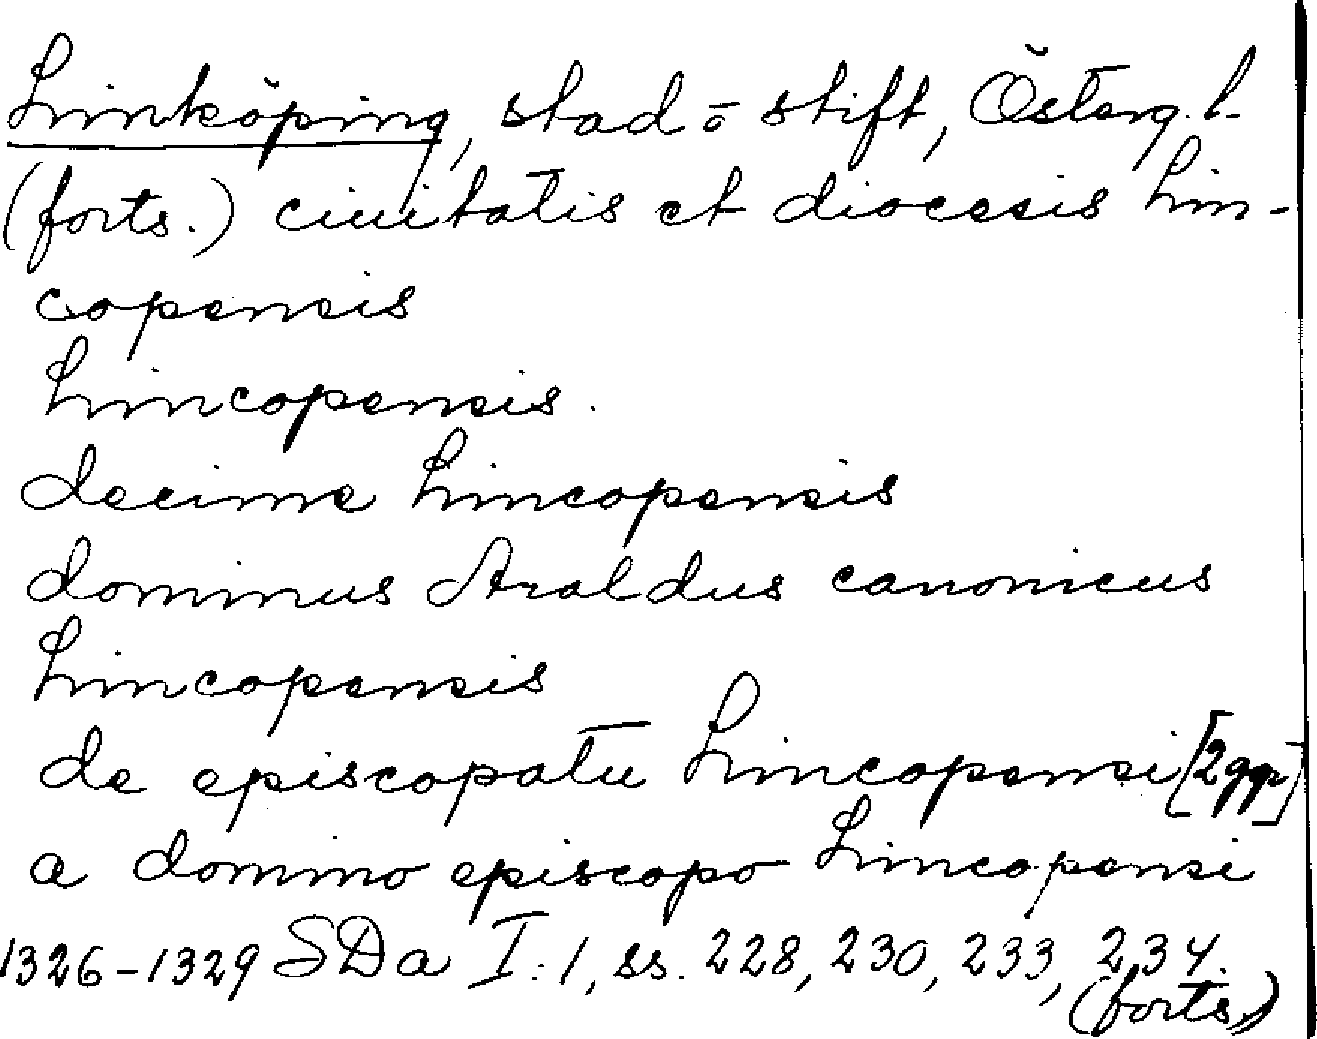 Linköping, stad o stift, Österg.l.
(forts.) ciuitatis et diocesis Lin-
copensis
Lincopensis.
decime Lincopensis
dominus Araldus canonicus
Lincopensis
de episcopatu Lincopensi [2 ggr]
a domino episcopo Lincopensi
1326-1329 SDa I:1, ss. 228, 230, 233, 234.
(forts.)